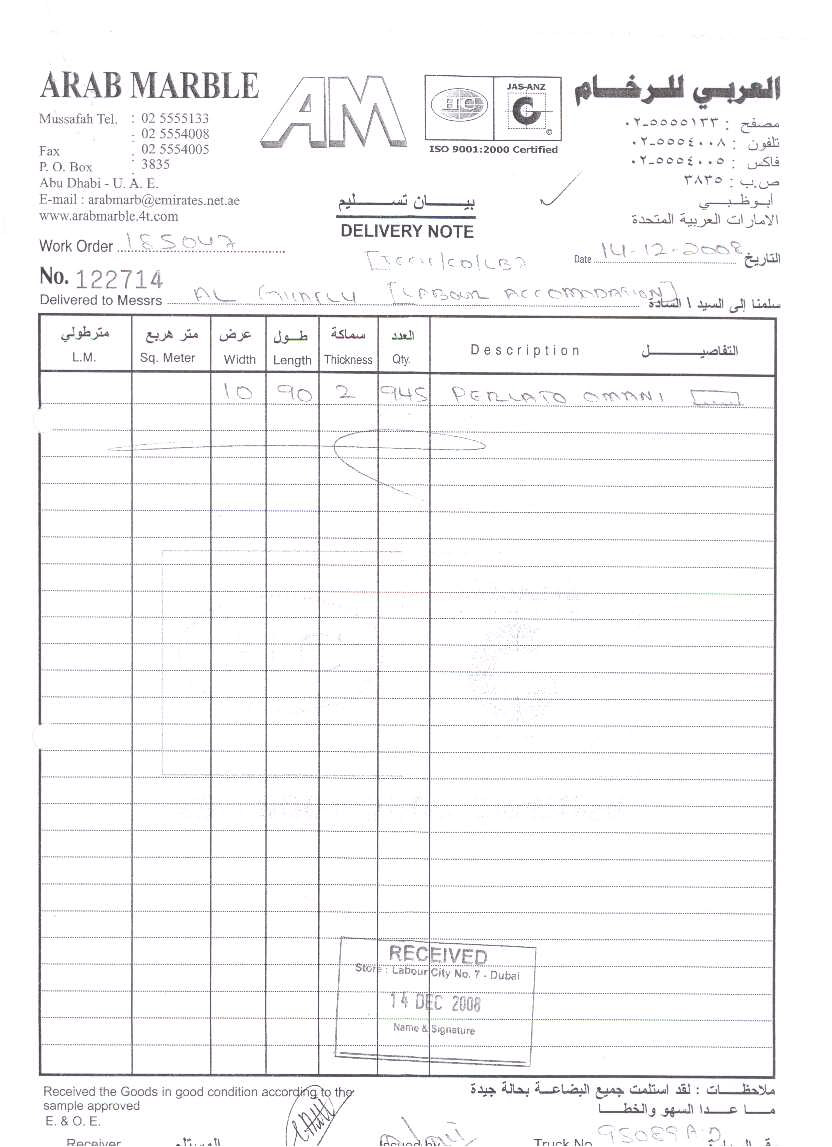 ARAB MARBLE
العربي للرخام
AM
JAS-ANZ
ISO 9001:2000 Certified
Mussafah Tel. : 02 5555133
- 02 5554008
Fax : 02 5554005
P. O. Box : 3835
Abu Dhabi - U. A. E.
E-mail : arabmarb@emirates.net.ae
www.arabmarble.4t.com
مصفح : ٠٢-٥٥٥٥١٣٣
تلفون : ٠٢-٥٥٥٤٠٠٨
فاكس : ٠٢-٥٥٥٤٠٠٥
ص.ب : ٣٨٣٥
أبوظبي
الامارات العربية المتحدة
بيان تسليم
DELIVERY NOTE
Work Order 185047
Date 14-12-2008 التاريخ
No. 122714
Delivered to Messrs AL [LABOUR ACCOMODATION] سلمنا إلى السيد / السادة
مترطولي متر مربع عرض طول سماكة العدد التفاصيل
L.M. Sq. Meter Width Length Thickness Qty. Description
10 90 2 945 PERLATO OMANI
RECEIVED
Store : Labour City No. 7 - Dubai
14 DEC 2008
Name & Signature
Received the Goods in good condition according to the
sample approved
E. & O. E.
ملاحظات : لقد استلمت جميع البضاعة بحالة جيدة
ما عدا السهو والخطأ
Receiver المستلم Issued by Truck No